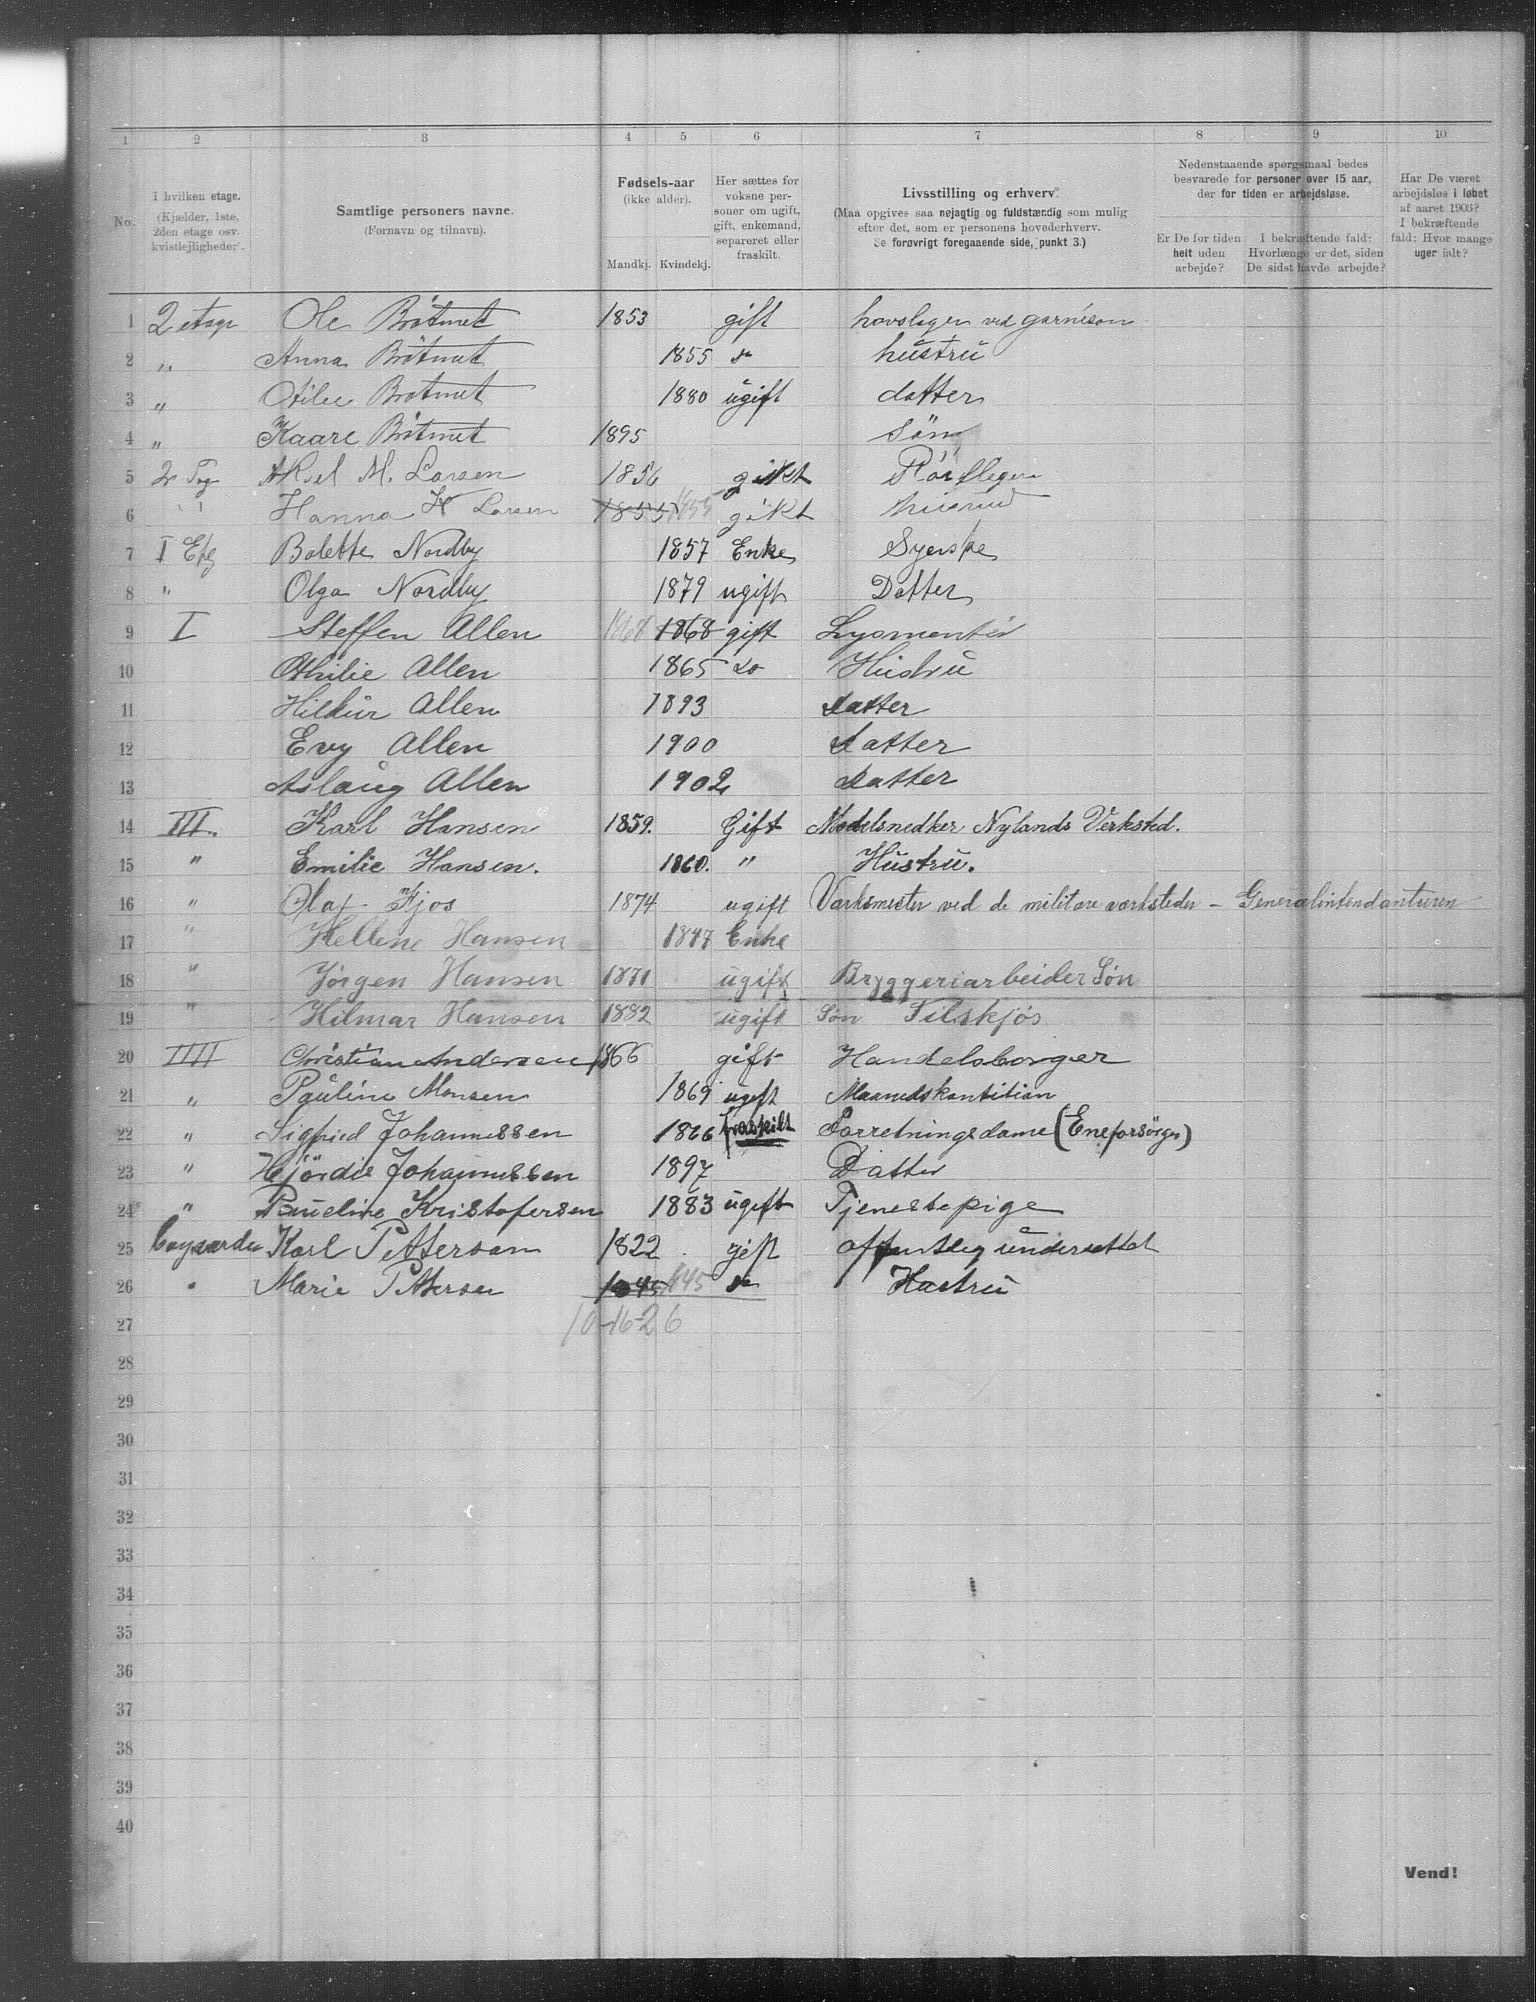 1 2 3 4 5 6 7 8 9 10
No. I hvilken etage. (Kjælder, 1ste, 2den etage osv. kvistlejligheder.
Samtlige personers navne. (Fornavn og tilnavn).
Fødsels-aar (ikke alder). Mandkj. Kvindekj.
Her sættes for voksne personer om ugift, gift, enkemand, separeret eller fraskilt.
Livsstilling og erhverv. (Maa opgives saa nøjagtig og fuldstændig som mulig efter det, som er personens hovederhverv. Se forøvrigt foregaaende side, punkt 3.)
Nedenstaaende spørgsmaal bedes besvarede for personer over 15 aar, der for tiden er arbejdsløse.
Er De for tiden helt uden arbejde?
I bekræftende fald: Hvorlænge er det, siden De sidst havde arbejde?
Har De været arbejdsløs i løbet af aaret 1903? I bekræftende fald: Hvor mange uger ialt?
1 2 etage Ole Brötmet 1853 gift hovslager ved garnison
2 „ Anna Brötmet 1855 do hustru
3 „ Brötmet 1880 ugift datter
4 „ Kaare Brötmet 1895 sön
5 2 Aksel M. Larsen 1856 gikt
6 " Hanna H Larsen 1855 1855 gikt hustru
7 I Etg Bolette Nordby 1857 Enke Syerske
8 " Olga Nordby 1879 ugift Datter
9 I Steffen Allen 1868 1868 gift
10 Othilie Allen 1865 do Hustru
11 Hildur Allen 1893 datter
12 Evy Allen 1900 datter
13 Aslaug Allen 1902 datter
14 III. Karl Hansen 1859. Gift Modelsnedker Nylands Verksted.
15 " Emilie Hansen. 1860. " Hustru.
16 " Olaf Fjos 1874 ugift Værksmester ved de militære værksteder – Generalintendanturen
17 " Hellene Hansen 1847 Enke
18 " Jørgen Hansen 1871 ugift Bryggeriarbeider Søn
19 " Hilmar Hansen 1882 ugift Søn
20 IIII Christian Andersen 1866 gift Handelsborger
21 „ Pauline Monsen 1869 ugift
22 " Sigfried Johannessen 1866 fraskilt Forretningsdame (Eneforsörger)
23 " Hjördis Johannessen 1897 Datter
24 " Paueline Kristofersen 1883 ugift Tjenestepige
25 Karl Pettersen 1822 gift offentlig understöttet
26 " Marie Pettersen 1845 1845 do Hustru
27 10-16-26
28
29
30
31
32
33
34
35
36
37
38
39
40
Vend!